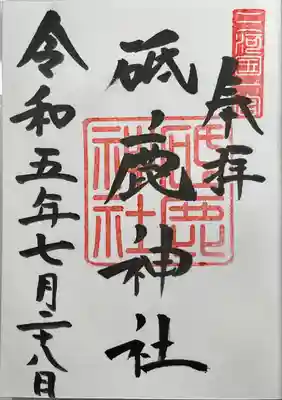 三河国一宮
奉拝
砥鹿神社
砥鹿神社
令和五年七月二十八日